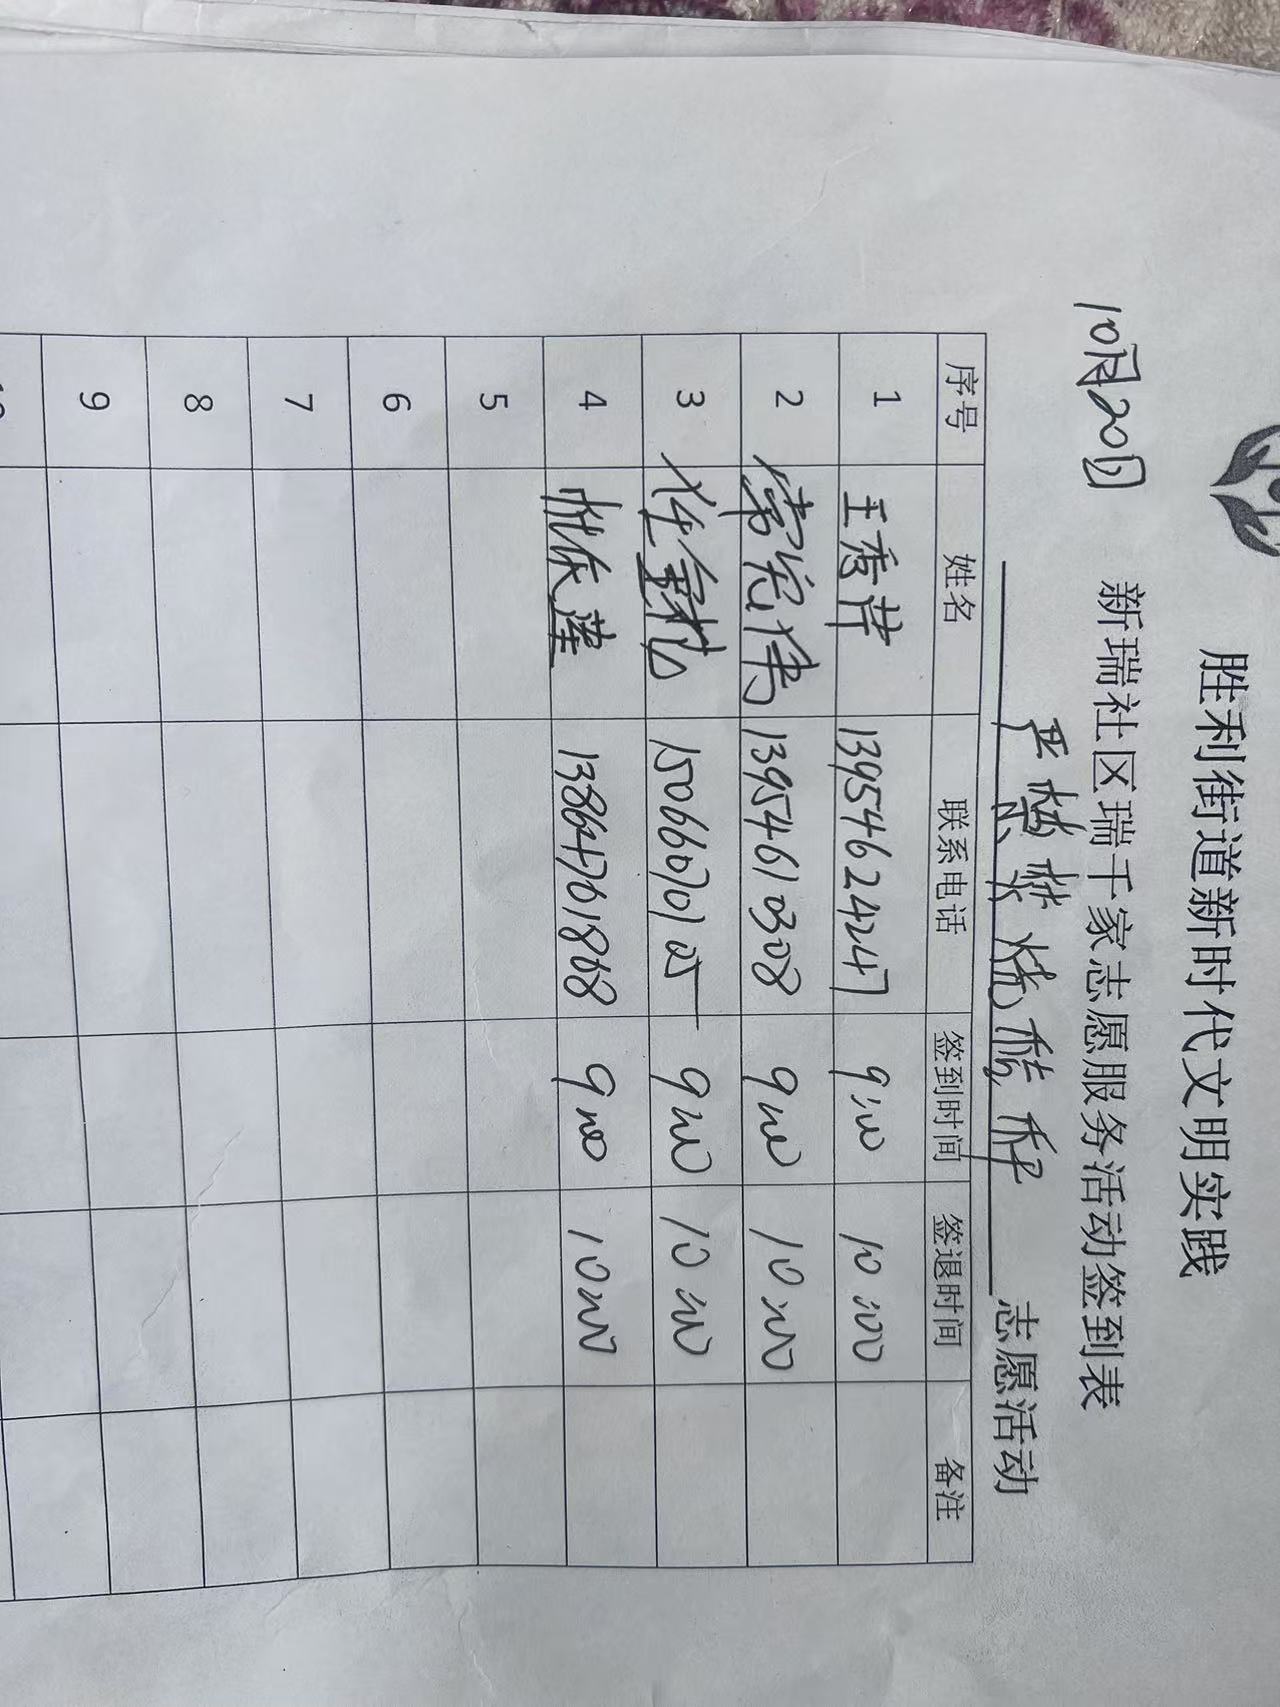 胜利街道新时代文明实践
10月20日 新瑞社区瑞千家志愿服务活动签到表
严禁焚烧秸秆 志愿活动
序号 姓名 联系电话 签到时间 签退时间 备注
1 王秀芹 13954624247 9:00 10:00
2 常宏伟 13954610308 9:00 10:00
3 任 15066070125 9:00 10:00
4 13864761868 9:00 10:00
5
6
7
8
9